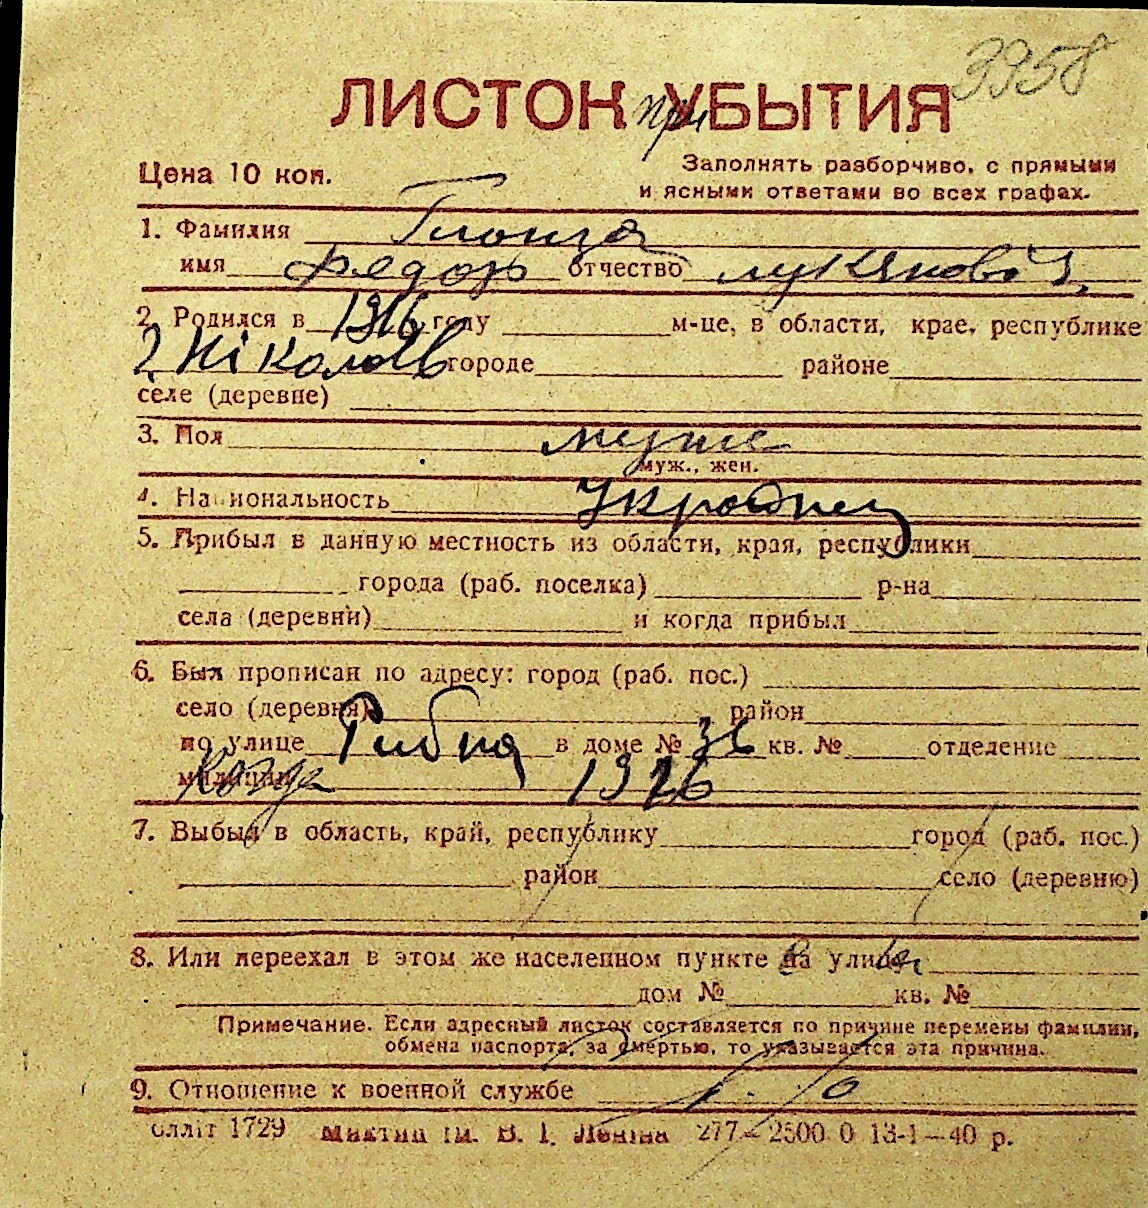 3958
ЛИСТОК при УБЫТИЯ
Цена 10 коп.
Заполнять разборчиво, с прямыми
и ясными ответами во всех графах.
1. Фамилия
имя Федор отчество Лукянович
2. Родился в 1916 году м-це, в области, крае, республике
г. Ніколаєв городе районе
селе (деревне)
3. Пол муже
муж., жен.
4. Национальность Украінец
5. Прибыл в данную местность из области, края, республики
города (раб. поселка) р-на
села (деревни) и когда прибыл
6. Был прописан по адресу: город (раб. пос.)
село (деревня) район
по улице Рибна в доме № 36 кв. № отделение
милиции Когда 1926
7. Выбыл в область, край, республику город (раб. пос.)
район село (деревню)
8. Или переехал в этом же населенном пункте на улицу
дом № кв. №
Примечание. Если адресный листок составляется по причине перемены фамилии,
обмена паспорта, за смертью, то указывается эта причина.
9. Отношение к военной службе
олліт 1729 Миктип ім. В. І. Леніна 277—2500 0 13-1—40 р.